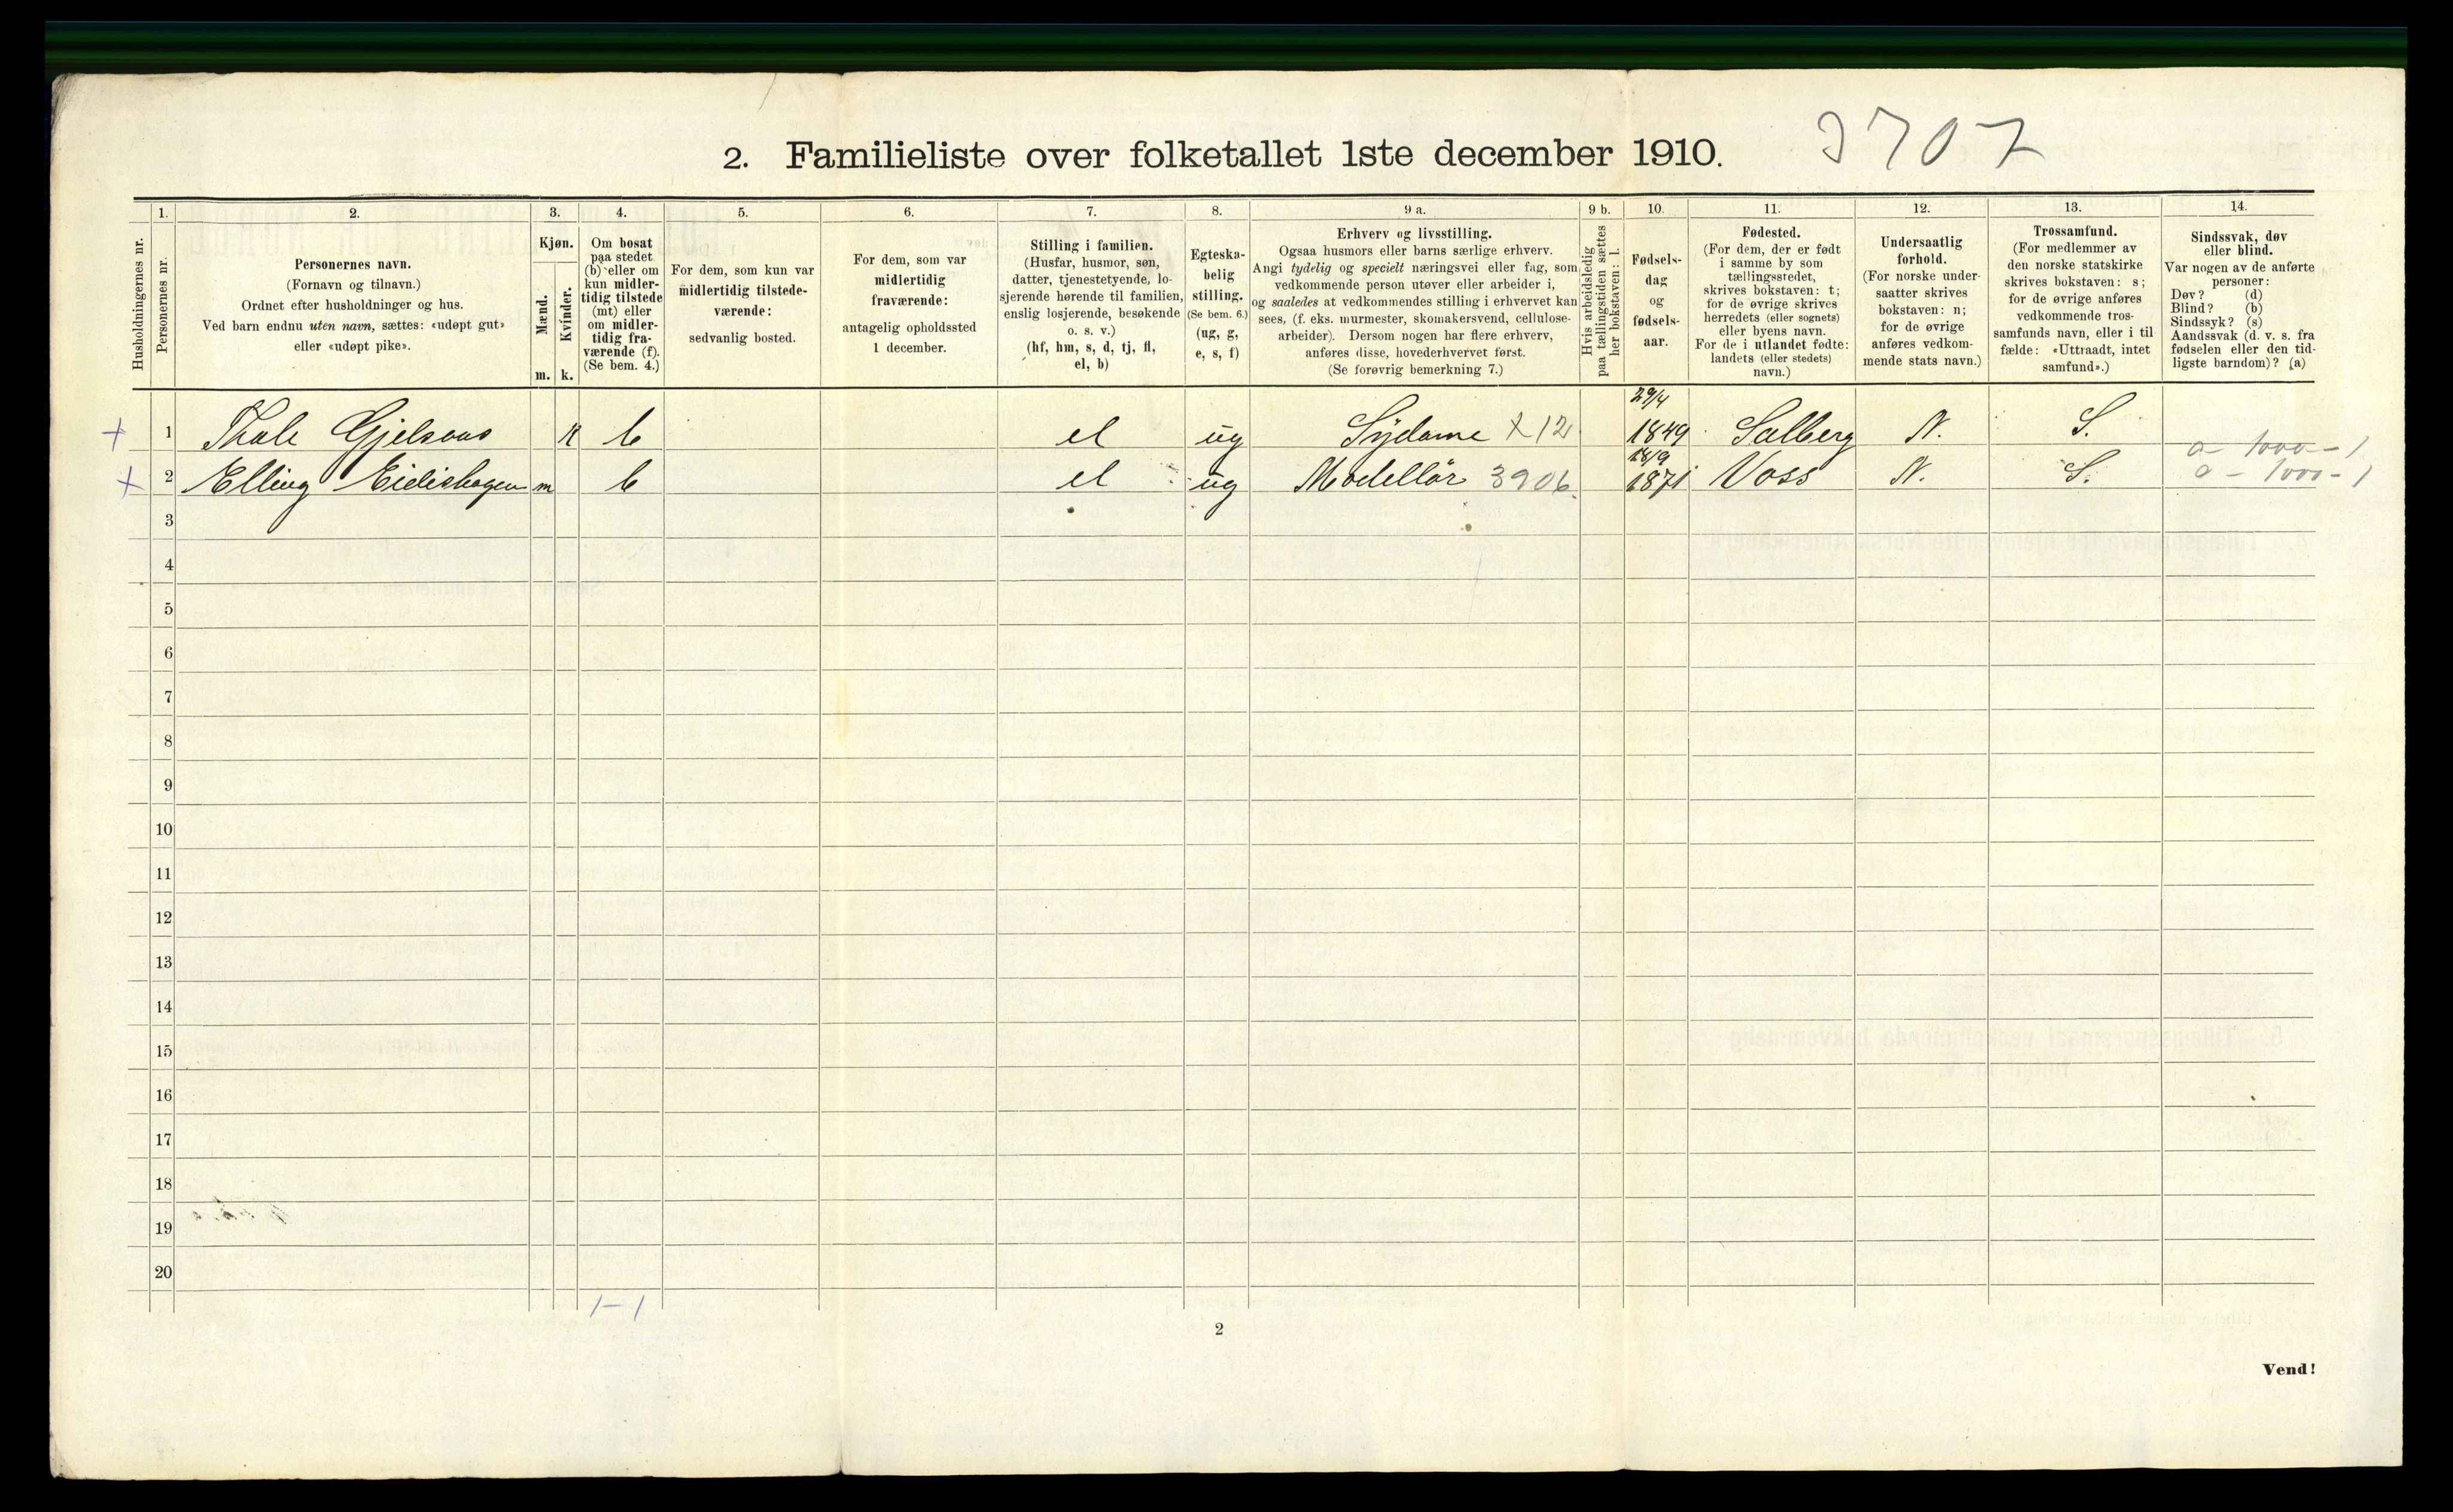 2. Familieliste over folketallet 1ste december 1910.
3707
Husholdningernes nr.
1.
Personernes nr.
2.
Personernes navn.
(Fornavn og tilnavn.)
Ordnet efter husholdninger og hus.
Ved barn endnu uten navn, sættes: «udøpt gut»
eller «udøpt pike».
3.
Kjøn.
Mænd.
m.
Kvinder.
k.
4.
Om bosat
paa stedet
(b) eller om
kun midler-
tidig tilstede
(mt) eller
om midler-
tidig fra-
værende (f).
(Se bem. 4.)
5.
For dem, som kun var
midlertidig tilstede-
værende:
sedvanlig bosted.
6.
For dem, som var
midlertidig
fraværende:
antagelig opholdssted
1 december.
7.
Stilling i familien.
(Husfar, husmor, søn,
datter, tjenestetyende, lo-
sjerende hørende til familien,
enslig losjerende, besøkende
o. s. v.)
(hf, hm, s, d, tj, fl,
el, b)
8.
Egteska-
belig
stilling.
(Se bem. 6.)
(ug, g,
e, s, f)
9 a.
Erhverv og livsstilling.
Ogsaa husmors eller barns særlige erhverv.
Angi tydelig og specielt næringsvei eller fag, som
vedkommende person utøver eller arbeider i,
og saaledes at vedkommendes stilling i erhvervet kan
sees, (f. eks. murmester, skomakersvend, cellulose-
arbeider). Dersom nogen har flere erhverv,
anføres disse, hovederhvervet først.
(Se forøvrig bemerkning 7.)
9 b.
Hvis arbeidsledig
paa tællingstiden sættes
her bokstaven: l.
10.
Fødsels-
dag
og
fødsels-
aar.
11.
Fødested.
(For dem, der er født
i samme by som
tællingsstedet,
skrives bokstaven: t;
for de øvrige skrives
herredets (eller sognets)
eller byens navn.
For de i utlandet fødte:
landets (eller stedets)
navn.)
12.
Undersaatlig
forhold.
(For norske under-
saatter skrives
bokstaven: n;
for de øvrige
anføres vedkom-
mende stats navn.)
13.
Trossamfund.
(For medlemmer av
den norske statskirke
skrives bokstaven: s;
for de øvrige anføres
vedkommende tros-
samfunds navn, eller i til-
fælde: «Uttraadt, intet
samfund».)
14.
Sindssvak, døv
eller blind.
Var nogen av de anførte
personer:
Døv? (d)
Blind? (b)
Sindssyk? (s)
Aandssvak (d. v. s. fra
fødselen eller den tid-
ligste barndom)? (a)
+ 1 Thale Gjelsaas k b el ug Sydame x12 29/4 1849 Solberg N. S. a - 1000 - 1
+ 2 Elling Eidishagen m b el ug Modellör 3906. 18/9 1871 Voss N. S. a - 1000 - 1
3
4
5
6
7
8
9
10
11
12
13
14
15
16
17
18
19
20
1-1
2
Vend!